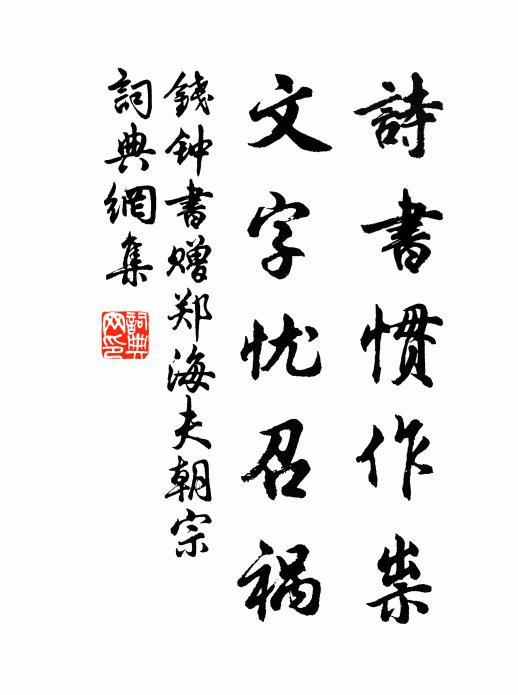 詩書慣作祟
文字忧召祸
錢钟書赠郑海夫朝宗
詞典網集
詞典网印